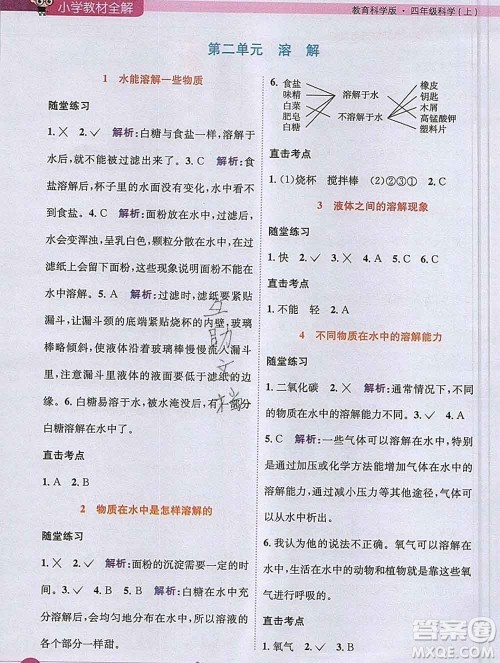 小学教材全解
教育科学版·四年级科学(上)
第二单元 溶 解
1 水能溶解一些物质
随堂练习
1.╳ 2.✓ 解析:白糖与食盐一样,溶解于
水后,就不能经过过滤与水分离。3.C 解析:
食盐溶解后,杯子里的水面没有变化,水中看不
到食盐。4.C 解析:面粉放在水中,过滤后,
水会变浑浊,呈乳白色,颗粒分散在水中,在过
滤纸上会留下面粉,这些现象都说明面粉没有
溶解在水中。5.✓ 解析:过滤时,滤纸要紧贴
漏斗,让漏斗颈的末端紧贴烧杯的内壁,玻璃
棒略倾斜,使液体沿着玻璃棒慢慢流入漏斗
中,注意漏斗里的液体要低于滤纸的边缘。
6.C 解析:白糖易溶解于水,被水淹没后,有一部分
白糖溶解在了水中。
直击考点
1.A 2.B
2 物质在水中是怎样溶解的
随堂练习
1.╳ 2.╳ 解析:面粉的沉淀需要一定的时
间。3.A 4.B 5.✓ 解析:白糖在水中溶解
后,会均匀地分布在水中,所以溶液的
各个部分一样甜。
6.食盐
味精
白菜
肥皂
白糖
溶解于水
不溶解于水
橡皮
钥匙
木屑
高锰酸钾
塑料片
直击考点
1.(1)烧杯 搅拌棒 (2)②③① 2.B
3 液体之间的溶解现象
随堂练习
1.快 2.✓ 3.✓ 4.╳
直击考点
1.不能 轻 2.A
4 不同物质在水中的溶解能力
随堂练习
1.二氧化碳 2.╳ 解析:通常情况下,不同
的物质在水中的溶解能力不同。3.✓ 4.✓
5.C 解析:一些气体可以溶解在水中,特别
是通过加压或化学方法能增大气体在水中的
溶解能力,通过减小压力等方式又能让气体从
水中逸出。
6.我认为他的说法不正确。氧气可以溶解在
水中,水中的动物和植物就是靠我们看不见
的、溶解在水中的氧气生存的。
直击考点
1.氧气 2.✓ 3.✓
互助文档
答案圈
MXQE.COM